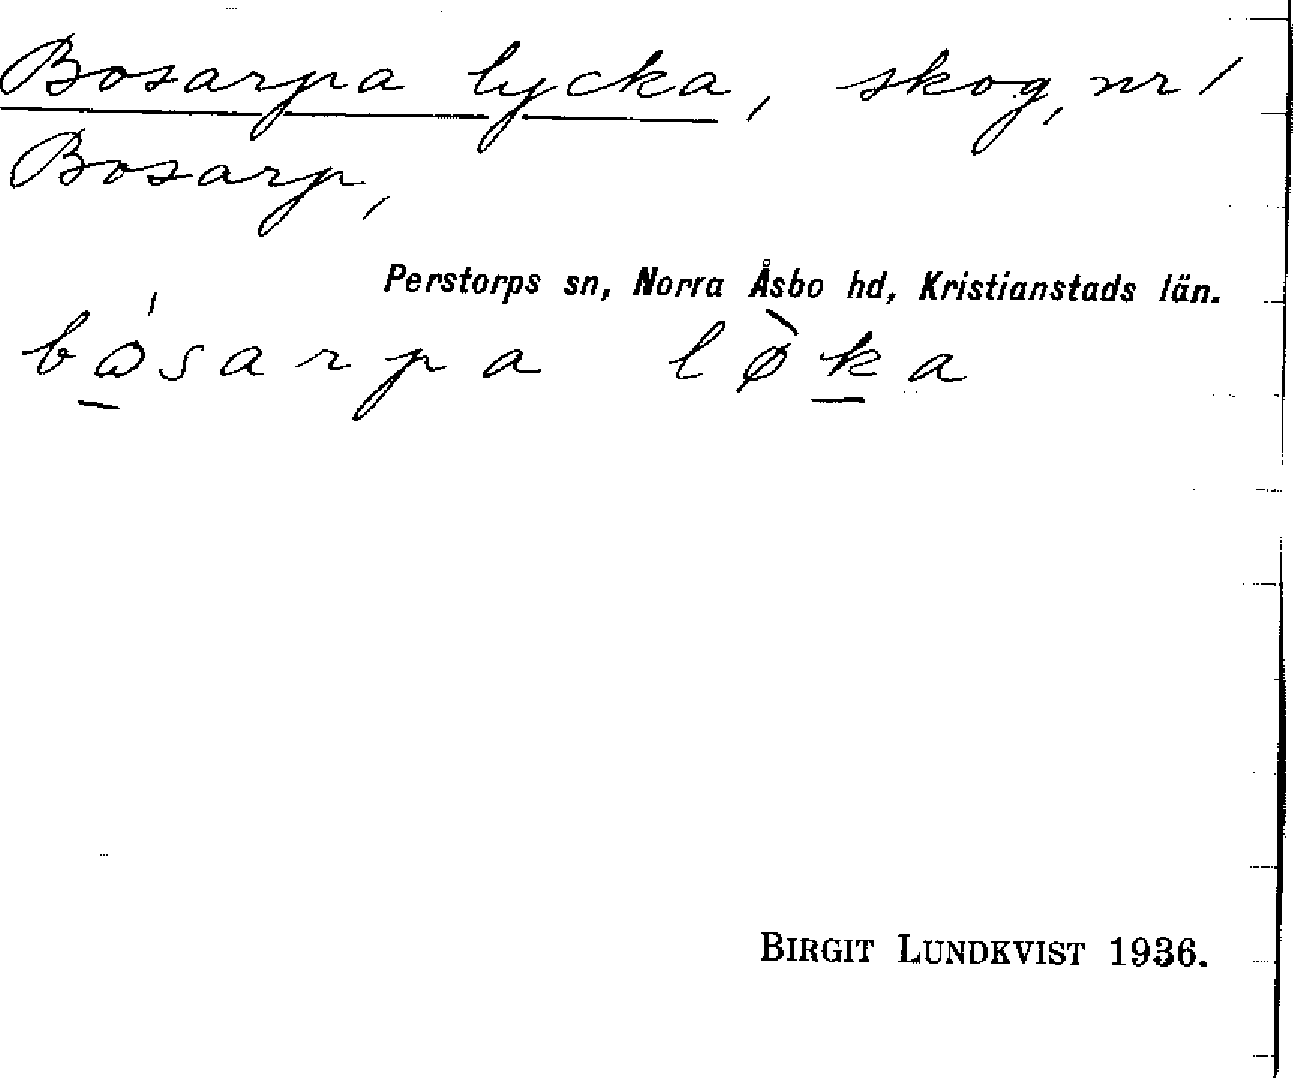 Bosarpa lycka, skog, nr 1
Bosarp,
Perstorps sn, Norra Åsbo hd, Kristianstads län.
bó̲sarpa lø̀k̲a
BIRGIT LUNDKVIST 1936.